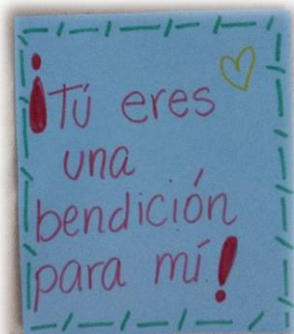 ¡Tú eres
una
bendición
para mí!